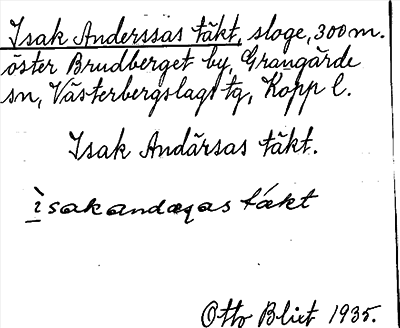 Isak Anderssas täkt, sloge, 300 m.
öster Brudberget by, Grangärde
sn, Västerbergslags tg, Kopp l.
Isak Andärsas täkt.
Otto Blixt 1935.